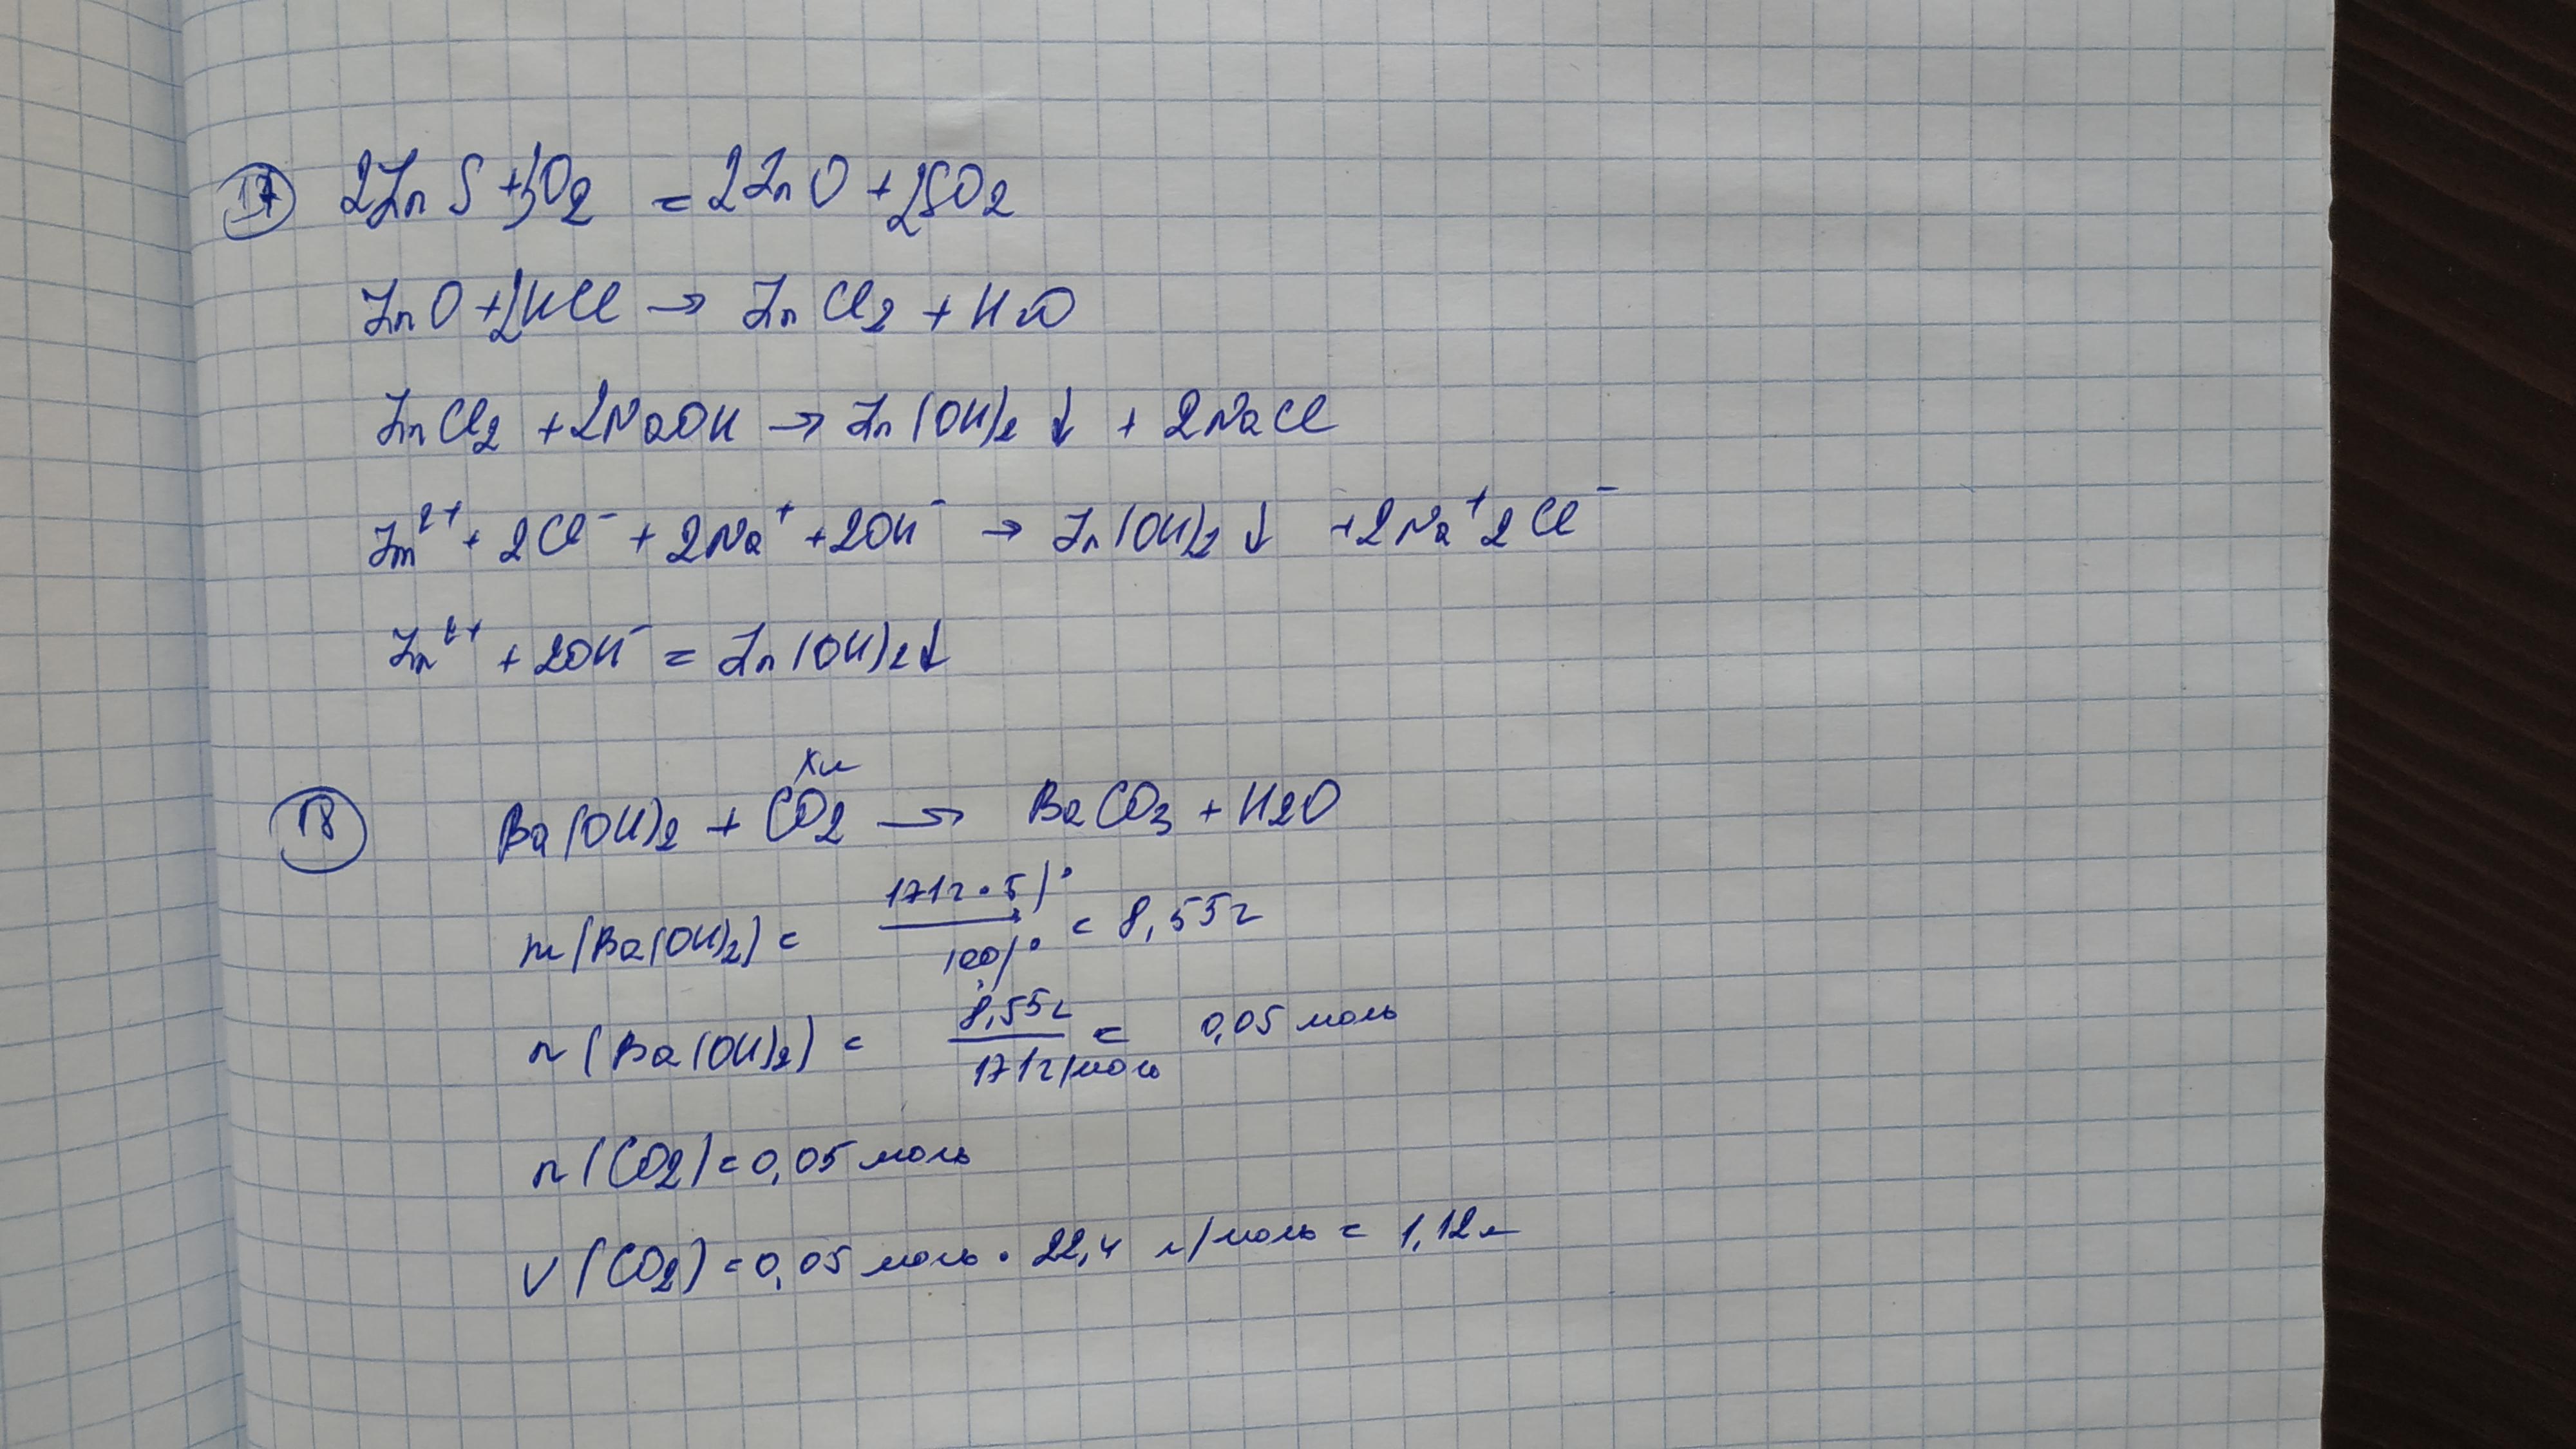 17 2ZnS + 3O2 = 2ZnO + 2SO2
ZnO + 2HCl → ZnCl2 + H2O
ZnCl2 + 2NaOH → Zn(OH)2 ↓ + 2NaCl
Zn²⁺ + 2Cl⁻ + 2Na⁺ + 2OH⁻ → Zn(OH)2 ↓ + 2Na⁺ 2Cl⁻
Zn²⁺ + 2OH⁻ = Zn(OH)2↓
хл
18 Ba(OH)2 + CO2 → BaCO3 + H2O
m(Ba(OH)2) = 171г · 5% / 100% = 8,55г
n(Ba(OH)2) = 8,55г / 171г/моль = 0,05 моль
n(CO2) = 0,05 моль
V(CO2) = 0,05 моль · 22,4 л/моль = 1,12л